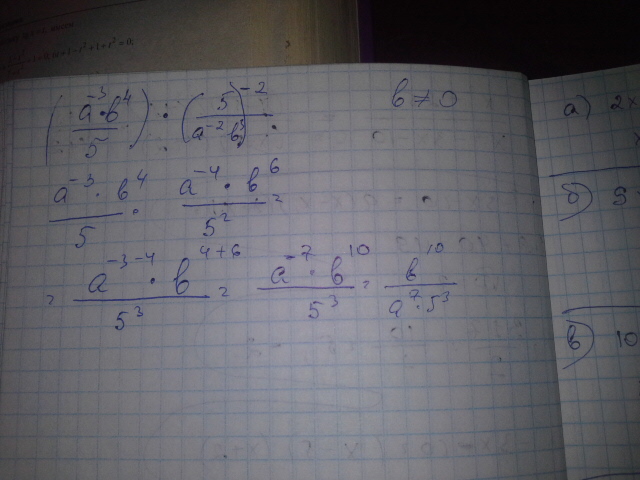 (a⁻³·b⁴/5) · (5/a⁻²·b³)⁻² b ≠ 0
a⁻³·b⁴/5 · a⁻⁴·b⁶/5² =
= a⁻³⁻⁴·b⁴⁺⁶/5³ = a⁻⁷·b¹⁰/5³ = b¹⁰/a⁷·5³
а) 2x
б) 5
в) 10